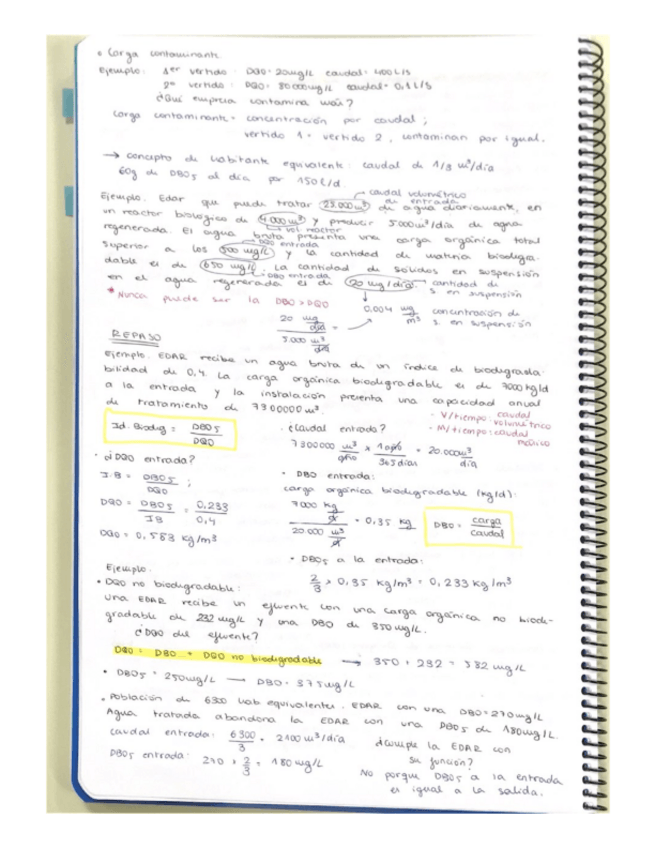 • Carga contaminante
Ejemplo: 1er vertido: DQO = 20 mg/L caudal = 400 L/s
2º vertido: DQO = 80000 mg/L caudal = 0,1 L/s
¿Qué empresa contamina más?
Carga contaminante = concentración por caudal;
vertido 1 = vertido 2, contaminan por igual.
→ concepto de habitante equivalente: caudal de 1/3 m³/día
60g de DBO5 al día por 150 L/d.
caudal volumétrico
de entrada
Ejemplo. Edar que puede tratar 25.000 m³ de agua diariamente, en
un reactor biológico de 4.000 m³ y producir 5.000 m³/día de agua
vol reactor
regenerada. El agua bruta presenta una carga orgánica total
DQO entrada
superior a los 500 mg/L y la cantidad de materia biodegra-
dable es de 650 mg/L. La cantidad de sólidos en suspensión
DBO entrada
en el agua regenerada es de 20 mg/día. cantidad de
s en suspensión
* Nunca puede ser la DBO > DQO
20 mg/día / 5.000 m³/día = 0,004 mg/m³ concentración de
s. en suspensión
REPASO
Ejemplo. EDAR recibe un agua bruta de un índice de biodegrada-
bilidad de 0,4. La carga orgánica biodegradable es de 7000 kg/d
a la entrada y la instalación presenta una capacidad anual
de tratamiento de 7300000 m³.
- V/tiempo: caudal volumétrico
- M/tiempo: caudal másico
Id. Biodeg = DBO5 / DQO
· ¿Caudal entrada?
7300000 m³/año × 1 año / 365 días = 20.000 m³/día
• ¿DQO entrada?
IB = DBO5 / DQO ;
DQO = DBO5 / IB = 0,233 / 0,4
DQO = 0,583 kg/m³
• DBO entrada:
carga orgánica biodegradable (kg/d):
7000 kg/d / 20.000 m³/d = 0,35 kg
DBO = carga / caudal
• DBO5 a la entrada:
2/3 × 0,35 kg/m³ = 0,233 kg/m³
Ejemplo.
• DQO no biodegradable:
Una EDAR recibe un efluente con una carga orgánica no biode-
gradable de 232 mg/L y una DBO de 350 mg/L.
¿DQO del efluente?
DQO = DBO + DQO no biodegradable → 350 + 232 = 582 mg/L
• DBO5 = 250 mg/L → DBO = 375 mg/L
• Población de 6300 hab equivalentes. EDAR con una DBO = 270 mg/L
Agua tratada abandona la EDAR con una DBO5 de 180 mg/L.
caudal entrada: 6300 / 3 = 2100 m³/día
DBO5 entrada: 270 × 2/3 = 180 mg/L
¿Cumple la EDAR con
su función?
No porque DBO5 a la entrada
es igual a la salida.